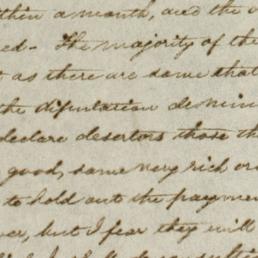 within a month, and the
ed. The majority of the
as there are some that
the disputation
declare desertors those th
good, some very rich or
to hold out the paymen
ver, but I fear they will